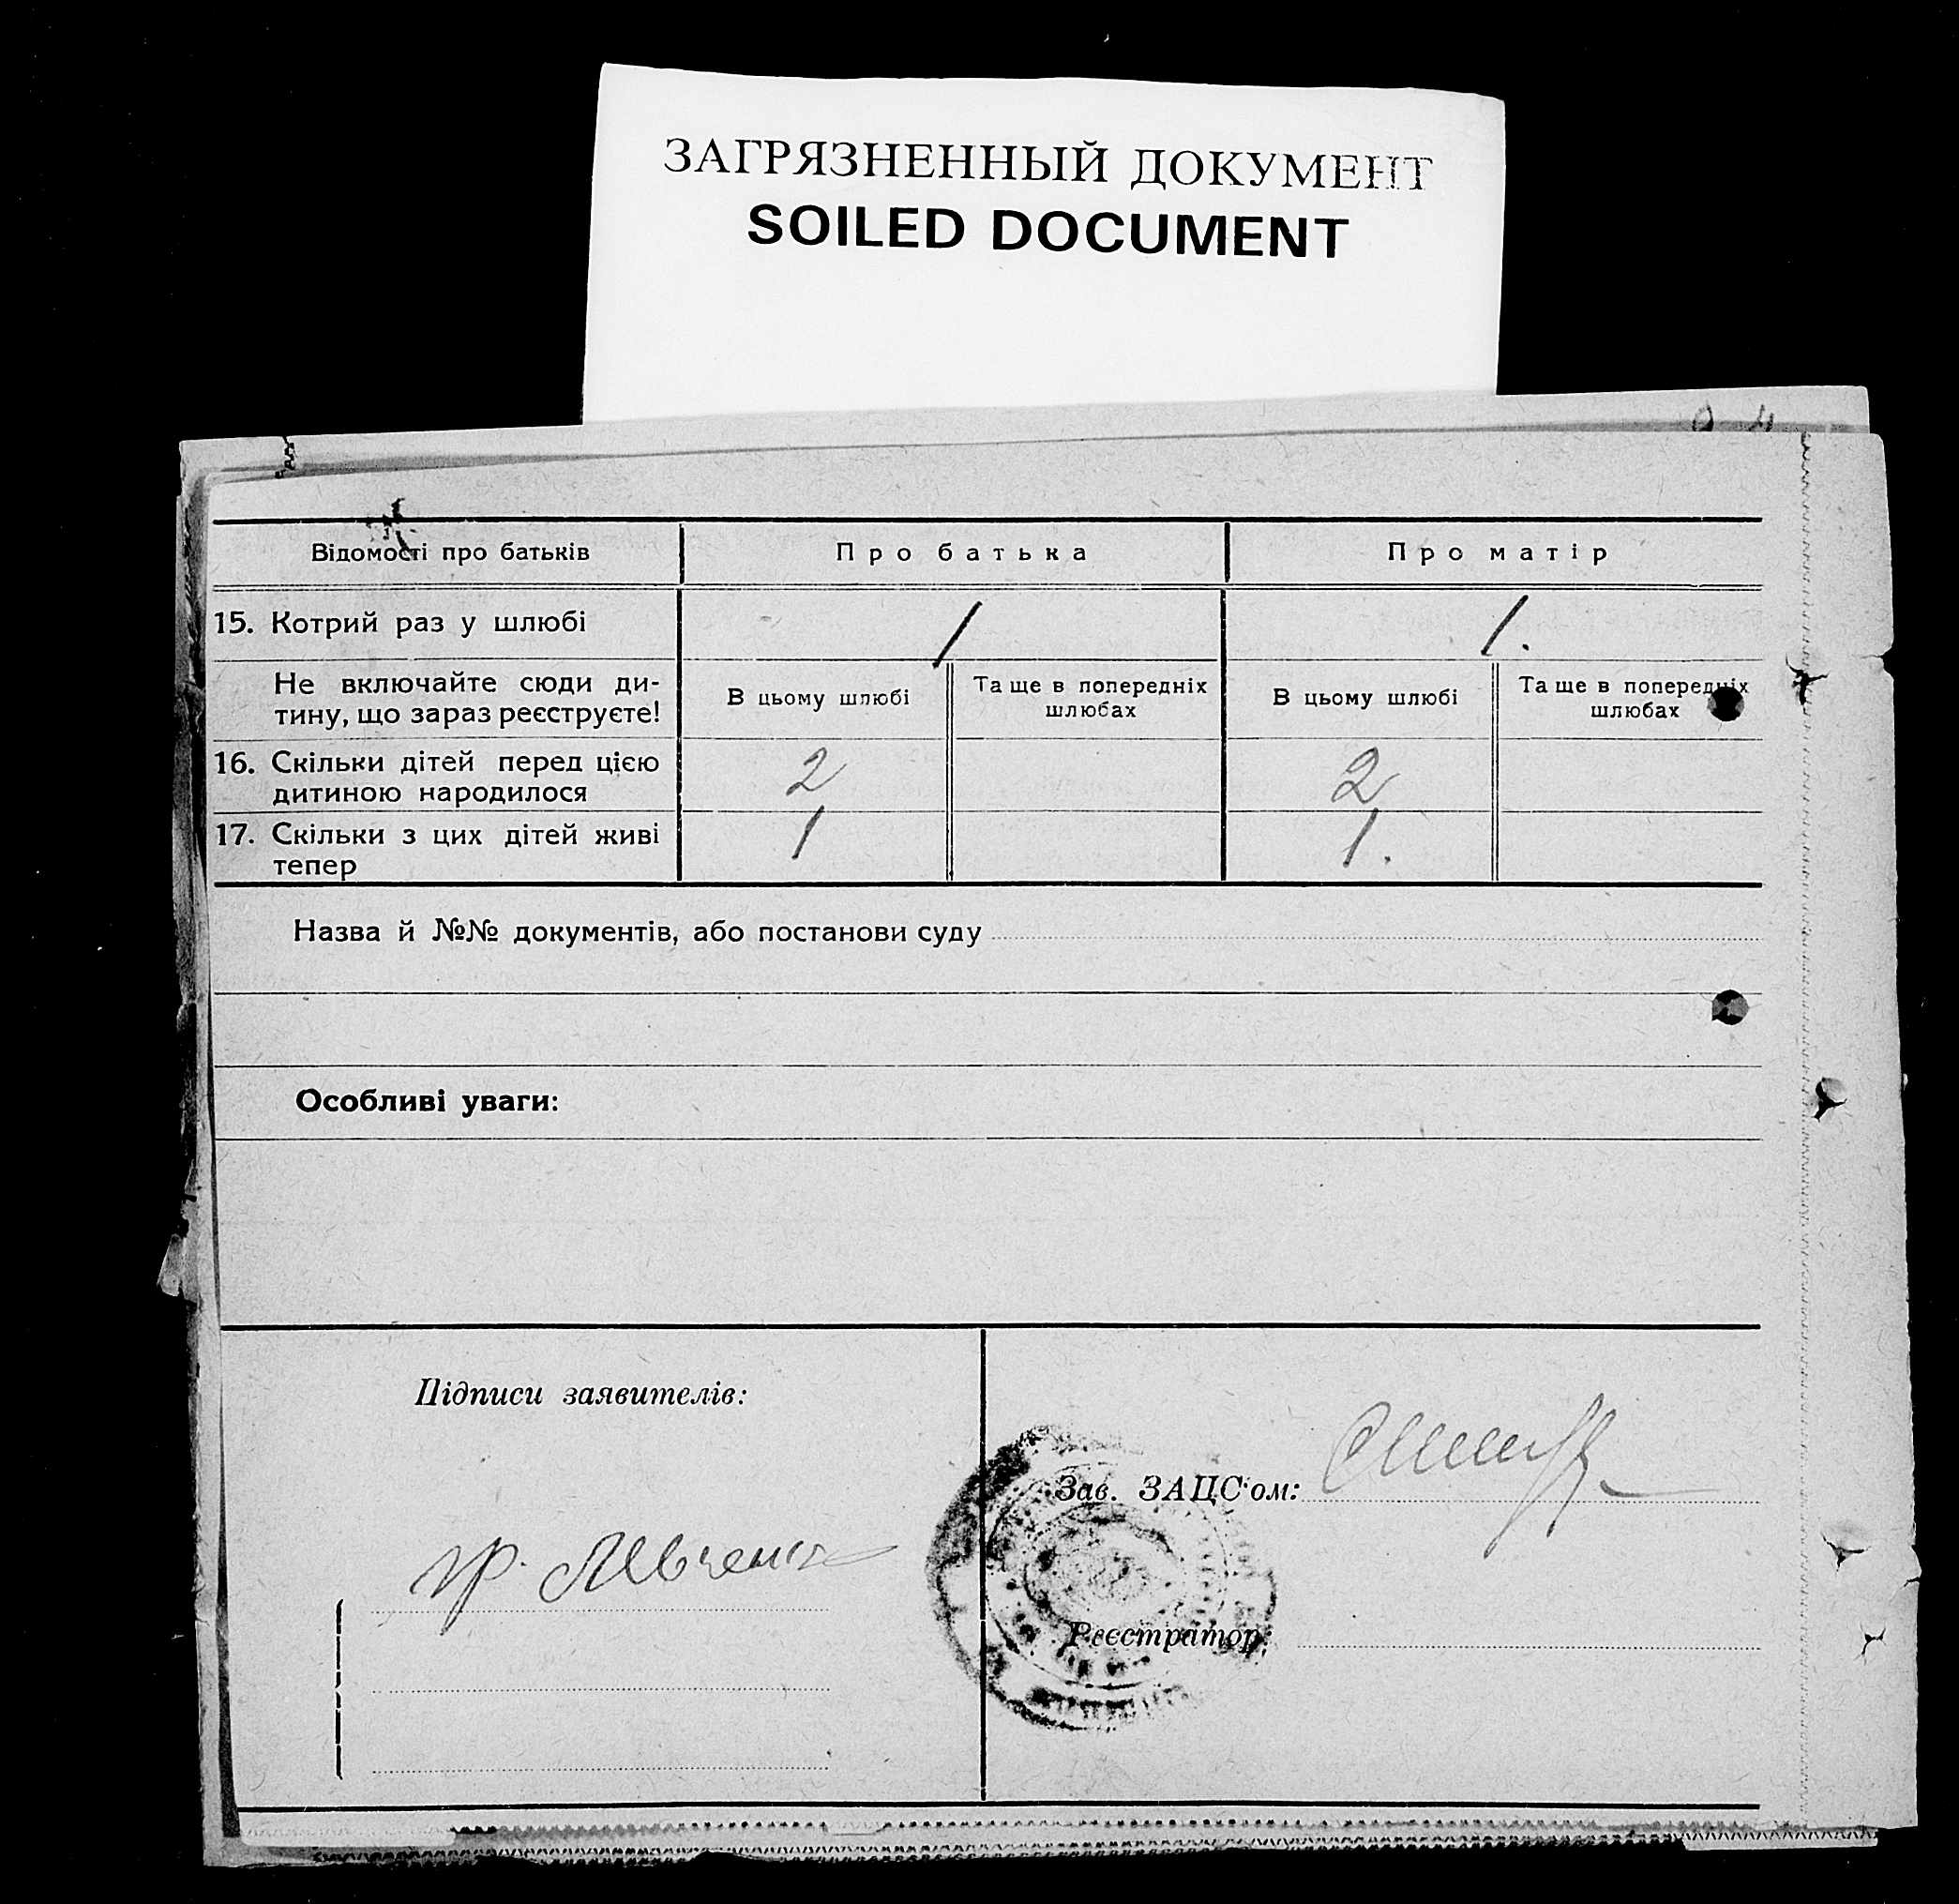 ЗАГРЯЗНЕННЫЙ ДОКУМЕНТ
SOILED DOCUMENT
Відомості про батьків
Про батька
Про матір
15. Котрий раз у шлюбі
1
1.
Не включайте сюди ди-
тину, що зараз реєструєте!
В цьому шлюбі
Та ще в попередніх
шлюбах
В цьому шлюбі
Та ще в попередніх
шлюбах
16. Скільки дітей перед цією
дитиною народилося
2
2
17. Скільки з цих дітей живі
тепер
1
1.
Назва й №№ документів, або постанови суду
Особливі уваги:
Підписи заявителів:
гр. Левченко
Зав. ЗАЦС'ом:
Реєстратор: